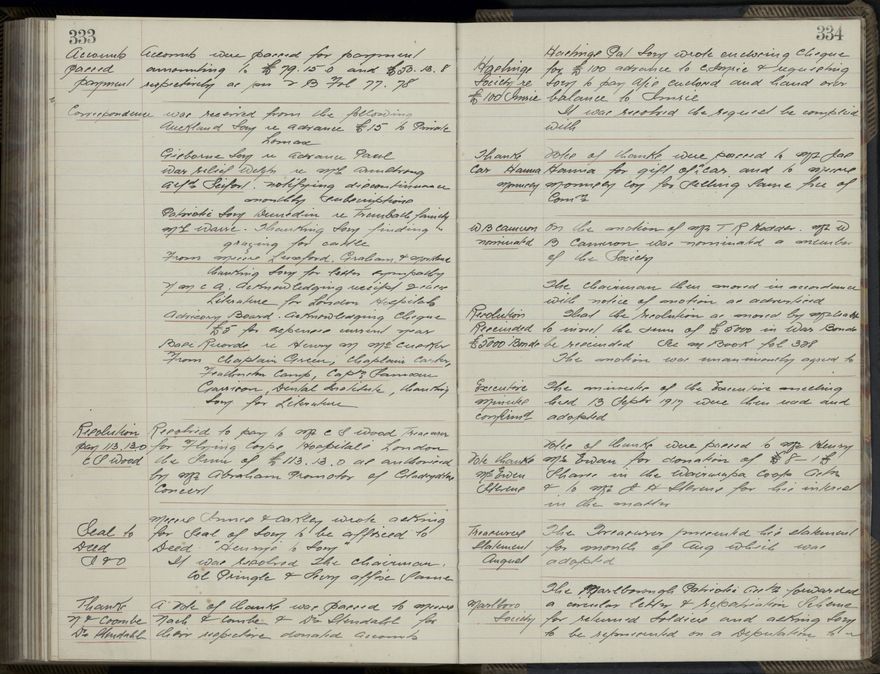 333
Accounts Accounts were passed for payment
passed amounting to £79.15.0 and £53.13.8
payment respectively as per C B Fol 77. 78
Correspondence was received from the following
Auckland Socy re advance £15 to Private
Lomax
Gisborne Socy re advance
War relief Welgtn re Mrs Armstrong
notifying discontinuance
monthly subscriptions
Patriotic Socy Dunedin re Trumbull family
Thanking Socy finding
grazing for cattle
From Messrs Luxford, Graham &
thanking Socy for letter sympathy
Y M C A. Acknowledging receipt 2 cases
Literature for London Hospitals
Advisory Board. Acknowledging Cheque
£5 for expenses current year
Base Records re Henry
From Chaplain Green, Chaplain Carter,
Featherston Camp, Captn
Garrison, Dental Institute, thanking
Socy for Literature
Resolution Resolved to pay to Mr C S Wood Treasurer
pay 113.13.0 for Flying Corps Hospitals London
C S Wood the Sum of £113.13.0 as authorised
by Mr Abraham Promotor of
Concert
Messrs Innes & Oakley wrote asking
Seal to for Seal of Socy to be affixed to
Deed Deed Henrys to Socy
I & O It was resolved the Chairman.
Col Pringle & Secy affix same
Thanks A vote of thanks was passed to Messrs
N & Coombe Nash & Coombe & Dr Stendahl for
Dr Stendahl their respective donated accounts
334
Hastings Pat Socy wrote enclosing Cheque
Hastings for £100 advance to & requesting
Society re Socy to pay a/cs enclosed and hand over
£100 balance to
It was resolved the request be complied
with
Thanks Votes of thanks were passed to Mr Jas
Car Hanna Hanna for gift of a car. and to Messrs
for selling same free of
Comn
W B Cameron On the motion of Mr T R Hodder. Mr W
nominated B Cameron was nominated a member
of the Society
The Chairman then moved in accordance
with notice of motion as advertised
Resolution That the resolution as moved by Mr
Rescinded to invest the sum of £5000 in War Bonds
£5000 Bonds be rescinded Re M Book fol 328
The motion was unanimously agreed to
Executive The minutes of the Executive meeting
minutes held 13 Septr 1917 were then read and
confirmed adopted
Vote of thanks were passed to Mr Henry
Vote thanks Mr Ewan for donation of 1 £
Mr Ewen Shares in the Wairarapa Coop Assn
Stevens & to Mr J H Stevens for his interest
in the matter
Treasurers The Treasurer presented his statement
Statement for month of Aug which was
August adopted
The Marlborough Patriotic Assn forwarded
Marlboro a circular letter & repatriation Scheme
Society for returned Soldiers and asking Socy
to be represented on a Deputation to